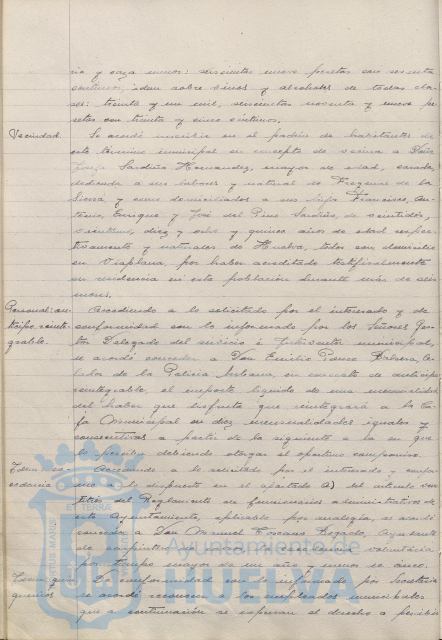 ria y caza menor: seiscientas nueve pesetas con sesenta
céntimos; idem sobre vinos y alcoholes de todas cla-
ses: treinta y un mil, seiscientas noventa y nueve pe
setas con treinta y cinco céntimos.
Vecindad. Se acordó inscribir en el padrón de habitantes de
este término municipal en concepto de vecina a Doña
Sardiña Hernández, mayor de edad, casada,
dedicada a sus labores y natural de Fregenal de la
Sierra y como domiciliados a sus hijos Francisco, An-
tonio, Enrique y José del Pino Sardiña, de veintidós,
veintiuno, diez y ocho y quince años de edad respec-
tivamente y naturales de Huelva, todos con domicilio
en Viaplana, por haber acreditado testificalmente
su residencia en esta población durante más de seis
meses.
Personal: an- Accediendo a lo solicitado por el interesado y de
ticipo reinte- conformidad con lo informado por los Señores Ges-
grable. tor Delegado del servicio e Interventor municipal,
se acordó conceder a Don Emilio Ponce Cabrera, Ce-
lador de la Policía Urbana, en concepto de anticipo
reintegrable, el importe líquido de una mensualidad
del haber que disfruta que reintegrará a la Ca-
ja Municipal en diez mensualidades iguales y
consecutivas a partir de la siguiente a la en que
lo perciba, debiendo otorgar el oportuno compromiso.
Idem: Accediendo a lo solicitado por el interesado y confor
me a lo dispuesto en el apartado a) del artículo vein
titrés del Reglamento de funcionarios administrativos de
este Ayuntamiento, aplicable por analogía, se acordó
conceder a Don Manuel Toscano Regado, Ayudante
de carpintero de la excedencia voluntaria
por tiempo mayor de un año y menos de cinco.
Idem: quin De conformidad con lo informado por Secretaría
quenios se acordó reconocer a los empleados municipales
que a continuación se expresan el derecho a percibir
ET TERRÆ
Ayuntamiento de
HUELVA